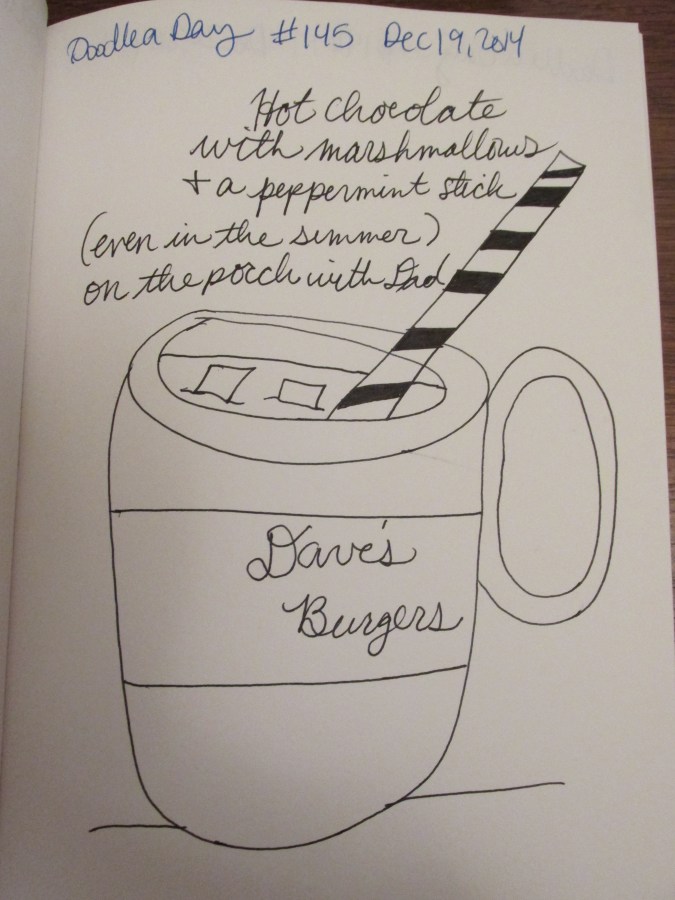 Doodle a Day #145 Dec 19, 2014
Hot chocolate
with marshmallows
+ a peppermint stick
(even in the summer)
on the porch with Dad
Dave's
Burgers